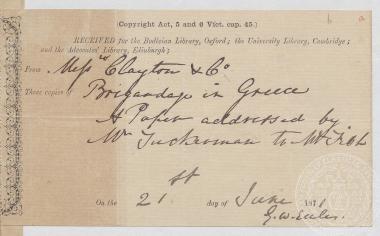 b a
(Copyright Act, 5 and 6 Vict. cap. 45.)
RECEIVED for the Bodleian Library, Oxford; the University Library, Cambridge;
and the Advocates' Library, Edinburgh;
From Messrs Clayton & Co
Three copies of Brigandage in Greece
A Paper addressed by
Mr Tuckerman to Mr Fish
On the 21st day of June 1871
G. W. Eccles.